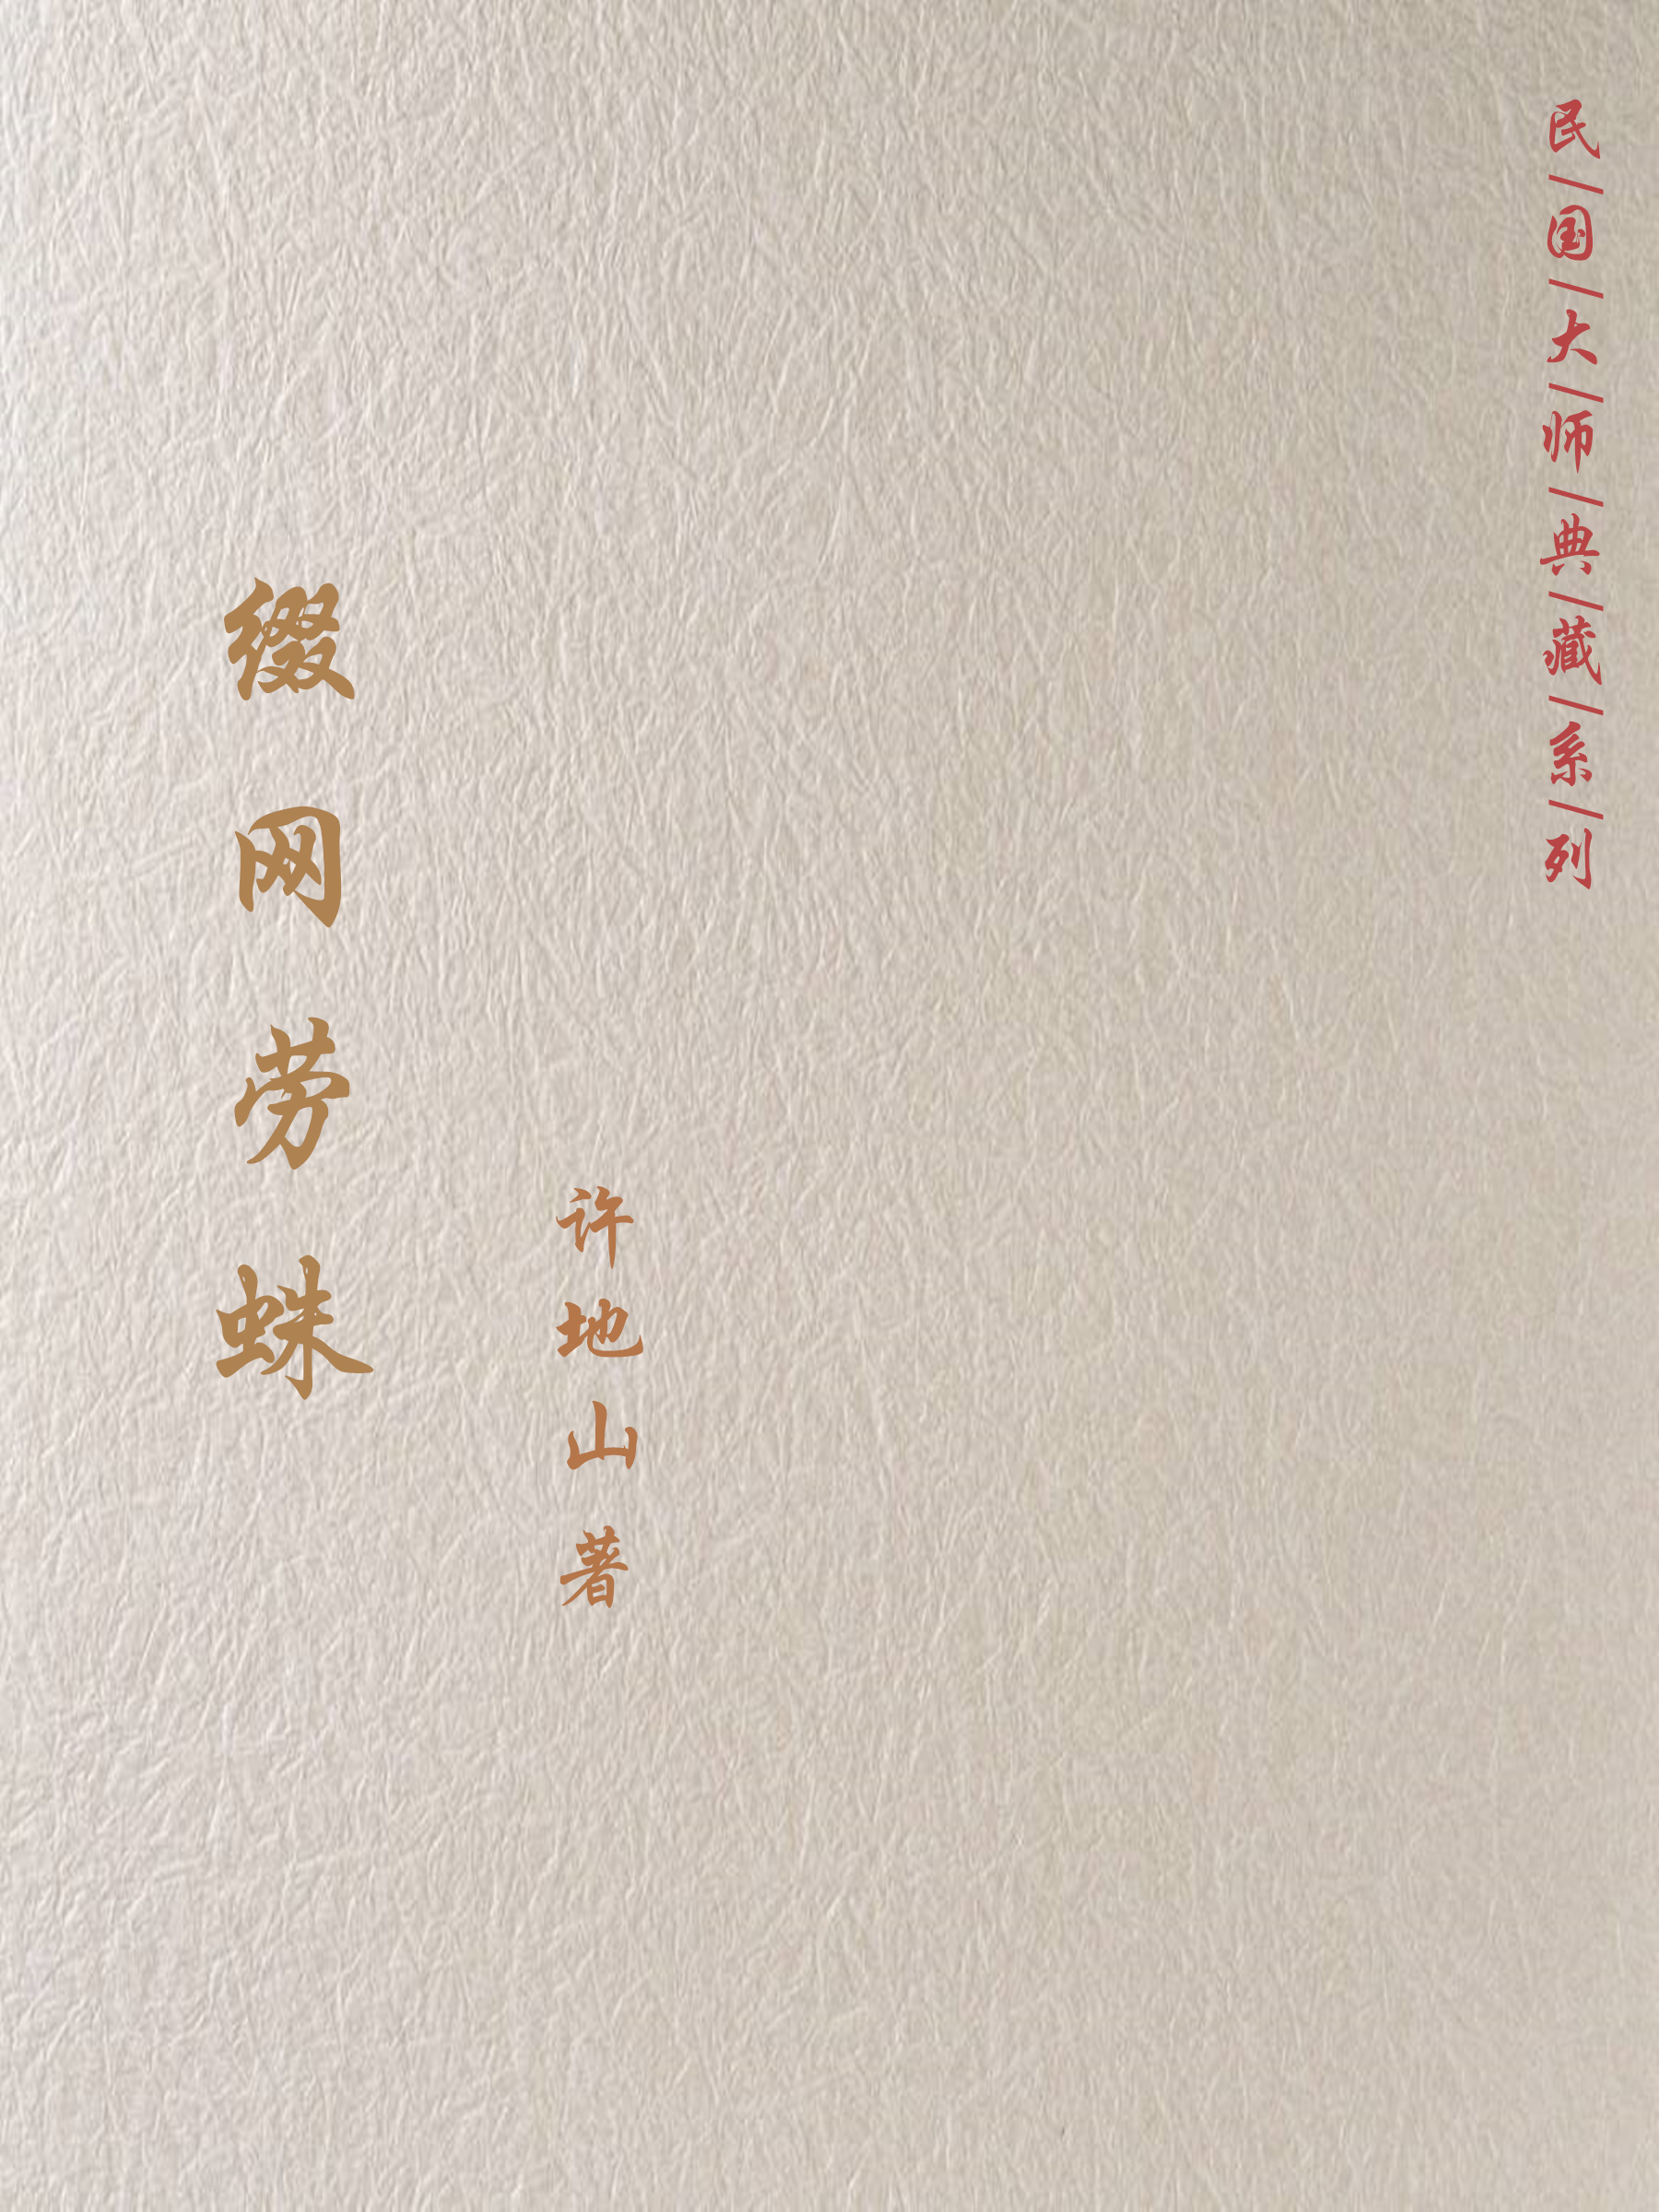 民/国/大/师/典/藏/系/列
缀网劳蛛
许地山著